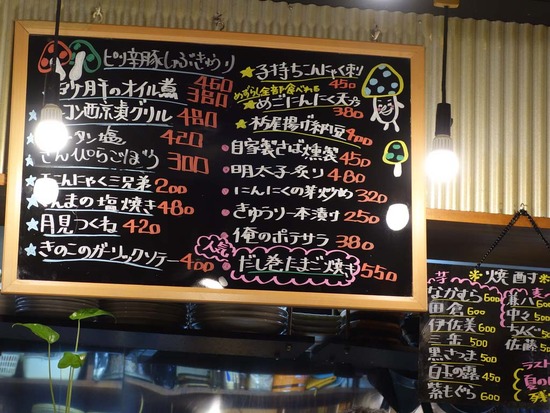 ピリ辛豚しゃぶきゅうり 460
砂肝のオイル煮 380
西京漬グリル 480
タン塩 420
きんぴらごぼう 300
こんにゃく三兄弟 200
さんまの塩焼き 480
月見つくね 420
きのこのガーリックソテー 400
子持ちこんにゃく刺 450
めずらし全部食べれる
めごにんにく天プラ 380
栃尾揚げ納豆 400
自家製さば燻製 450
明太子炙り 480
にんにくの芽炒め 320
きゅうり一本漬け 250
俺のポテサラ 380
人気
だし巻たまご焼き 550
焼酎
芋
なかむら 600
田倉 600
伊佐美 600
三岳 500
黒さつま 500
白玉の露 450
紫もぐら 600
麦
兼八 600
中々 500
佐藤 500
ラスト
夏の
残